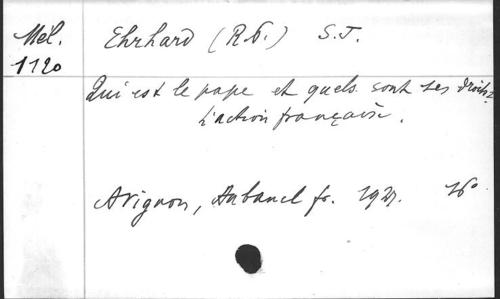 Mél. Ehrhard (R. P.) S.J.
1120
Qui est le pape et quels sont ses droits?
L'action française.
Avignon, Aubanel fr. 1927. 16°